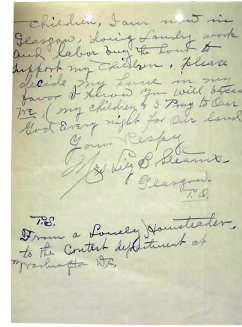 children, I am now in
Glasgow, doing Laundry work
and labor by the hour to
support my children, please
decide my in my
favor I know you will bless
me & my children & I Pray to Our
God Every night for our land
Yours Respy
Glasgow
P.S.
From a Lonely Homesteader,
to the Contest department at
Washington DC